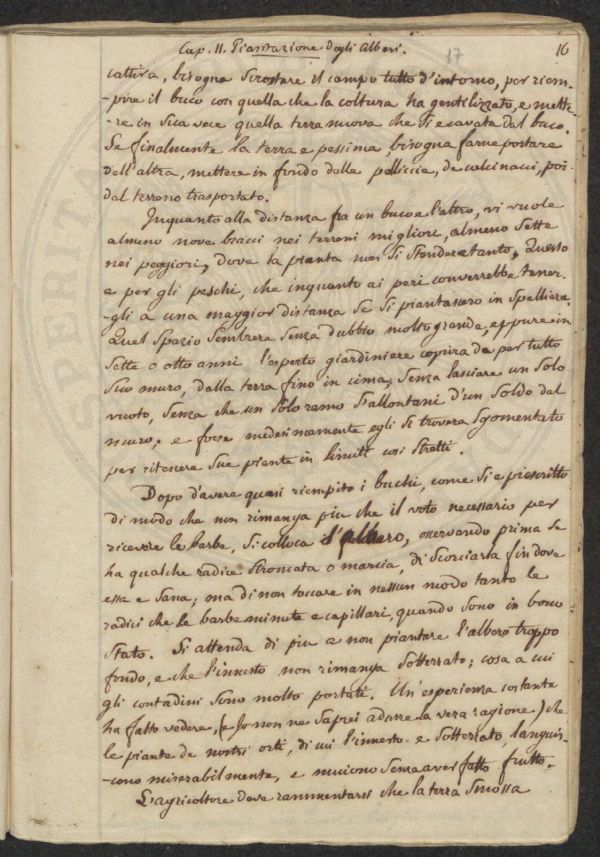 Cap. II. Piantazione degli Alberi.
17
16
cattiva, bisogna scrostare il campo tutto d'intorno, per riem-
-pire il buco con quella che la coltura ha gentilizzato, e mette-
-re in sua vece quella terra nuova che si è cavata dal buco.
Se finalmente la terra e pessima, bisogna farne portare
dell'altra, mettere in fondo delle pelliccie, de calcinacci, poi
dal terreno trasportato.
Inquanto alla distanza fra un buco e l'altro, vi vuole
almeno nove bracci nei terreni migliori, almeno sette
nei peggiori, dove la pianta non si stendera tanto. Questo
e per gli peschi, che inquanto ai peri converrebbe tener-
-gli a una maggior distanza se si piantassero in spalliera.
Quel spazio sembrera senza dubbio molto grande, eppure in
sette o otto anni l'esperto giardiniere coprira da per tutto
suo muro, dalla terra fino in cima, senza lasciare un solo
vuoto, senza che un solo ramo s'allontani d'un soldo dal
muro, e forse medesimamente egli si trovera sgomentato
per ritenere sue piante in limiti cosi stretti.
Dopo d'avere quasi riempito i buchi, come si e prescritto
di modo che non rimanga piu che il voto necessario per
ricevere le barbe, si colloca l'albero, osservando prima se
ha qualche radice stroncata o marcia, di scorciarla fin dove
essa e sana; ma di non toccare in nessun modo tanto le
radici che le barbe minute e capillari, quando sono in bono
stato. Si attenda di piu a non piantare l'albero troppo
fondo, e che l'innesto non rimanga sotterrato; cosa a cui
gli contadini sono molto portati. Un'esperienza costante
ha fatto vedere, (e Io non ne saprei adurre la vera ragione) che
le piante de nostri orti, di cui l'innesto e sotterrato, languis-
-cono miserabilmente, e muoiono senza aver fatto frutto.
L'agricoltore deve rammentarsi che la terra smossa